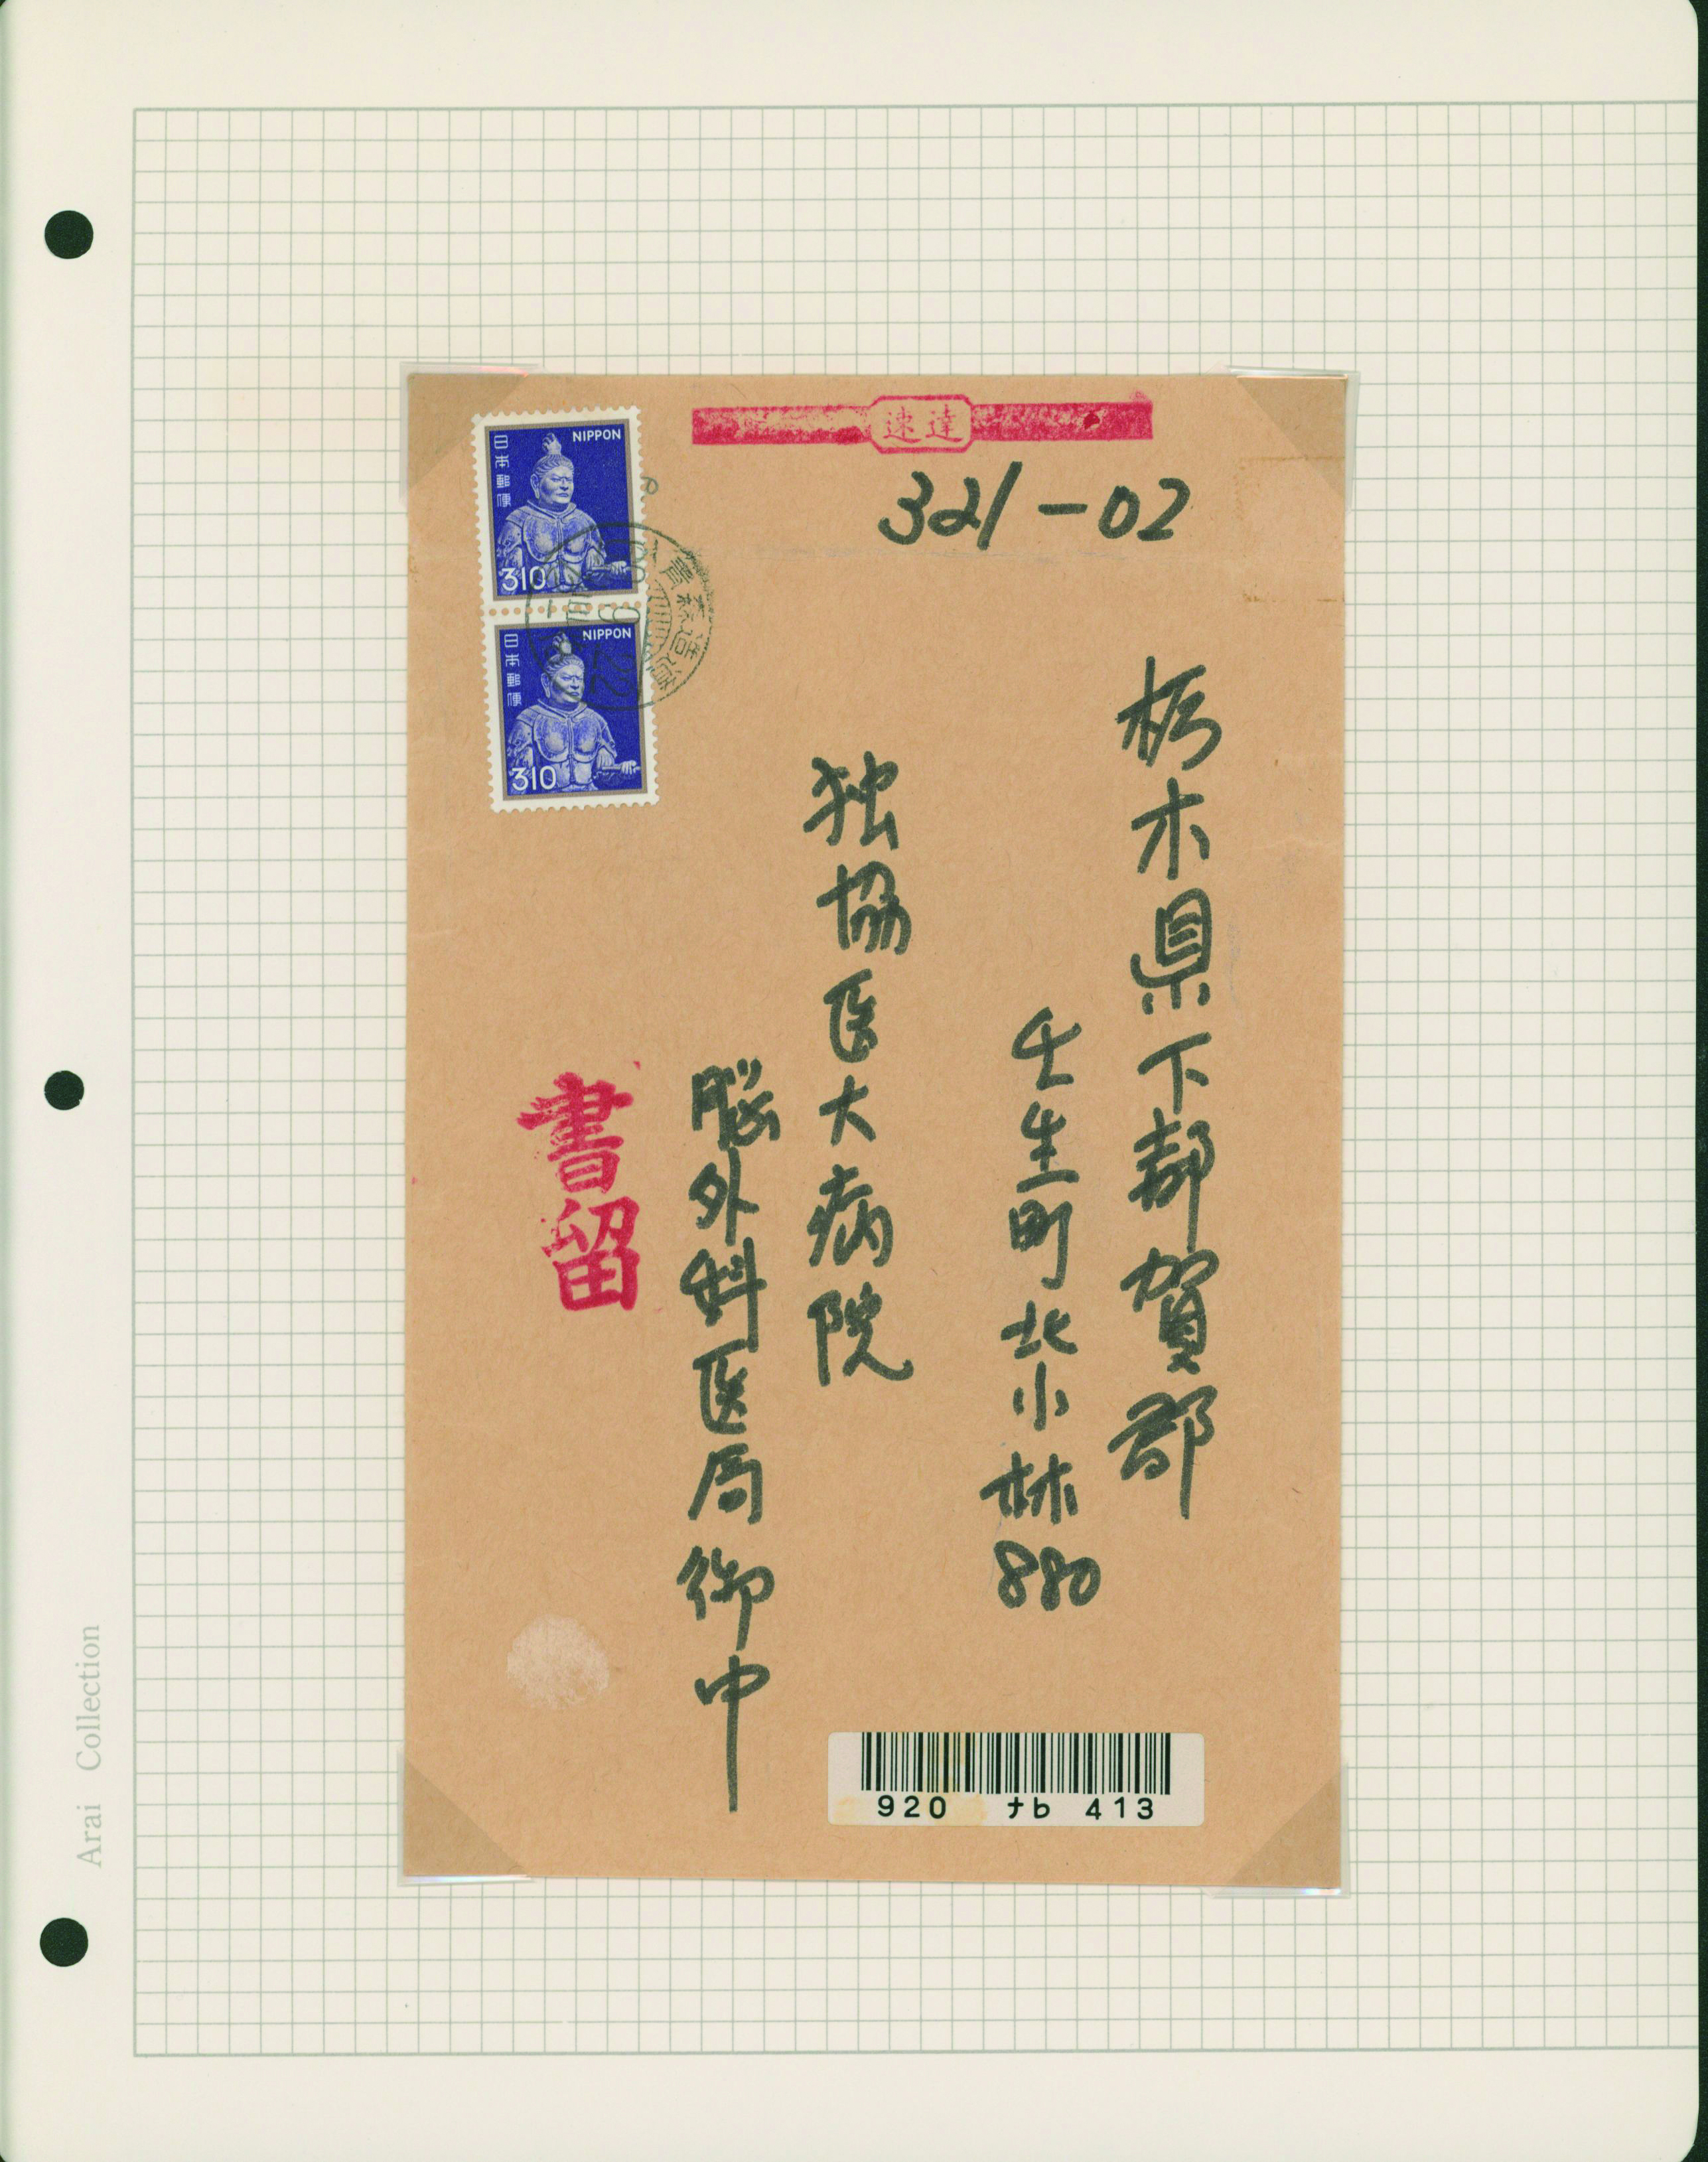 速達
321-02
栃木県下都賀郡
壬生町北小林880
独協医大病院
脳外科医局御中
書留
NIPPON
日本郵便
310
NIPPON
日本郵便
310
青森造道
920 ナb 413
Arai Collection